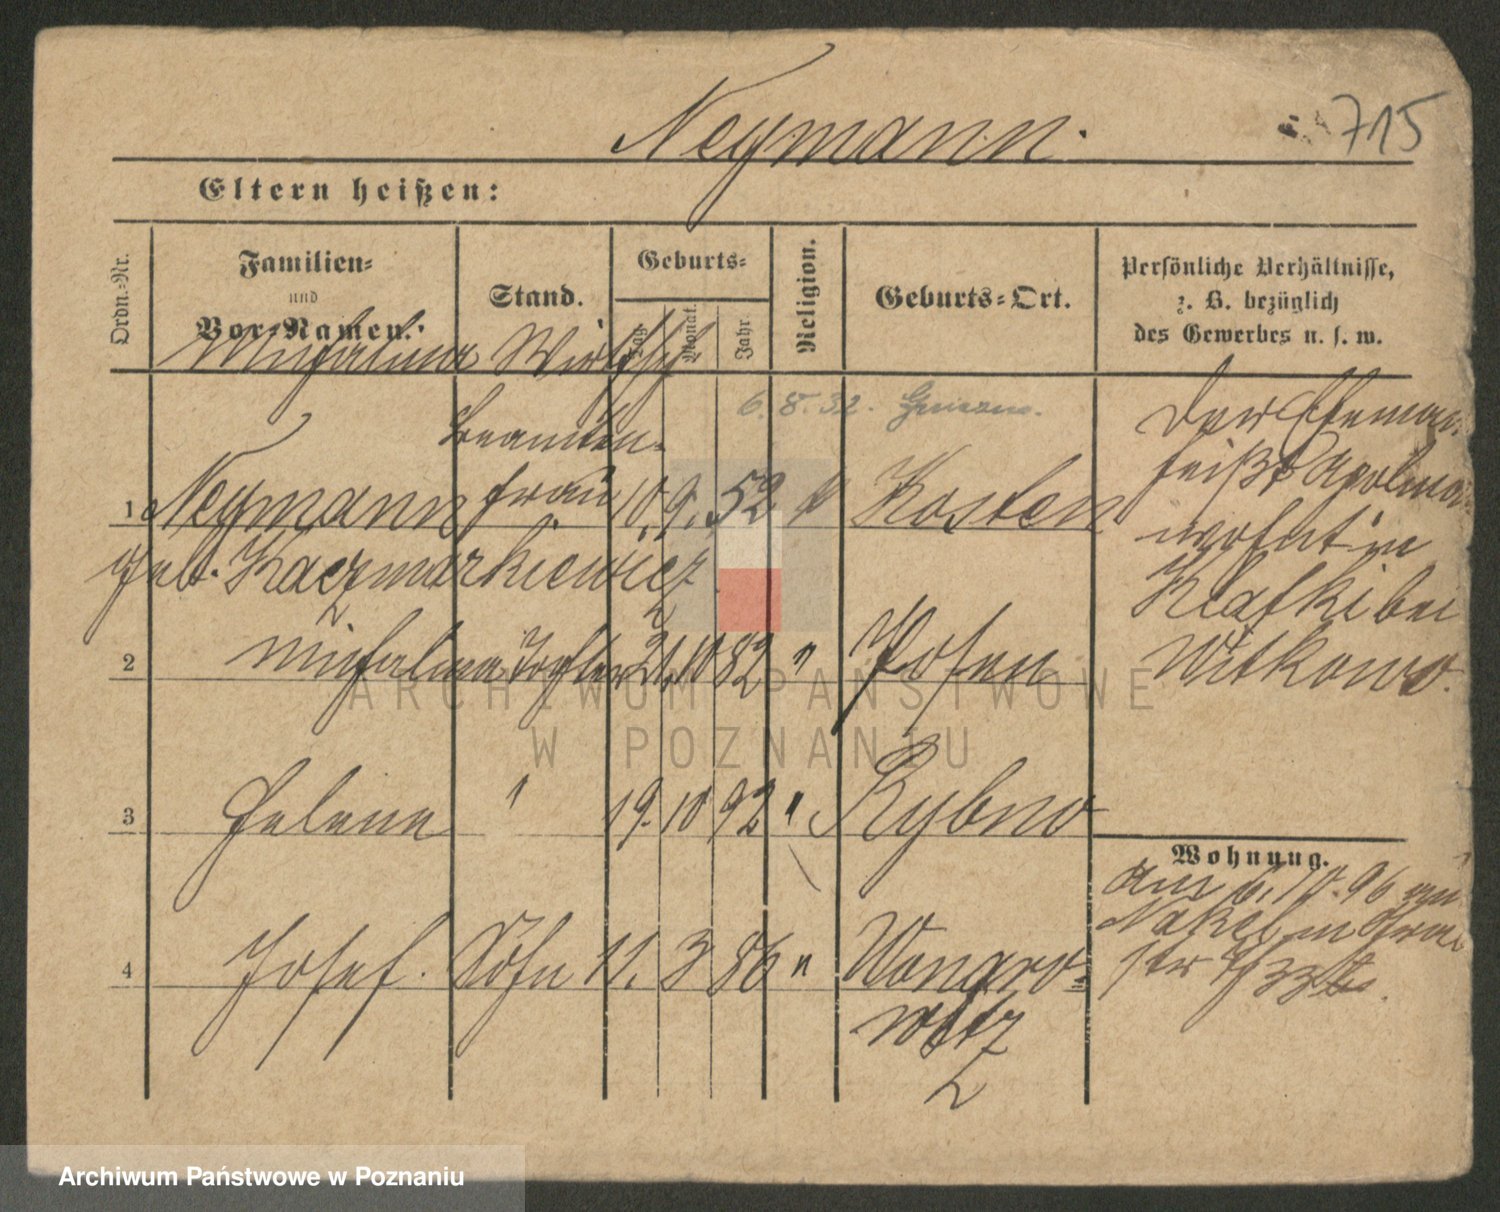 Neymann.
715
Eltern heißen:
Ordn.-Nr.
Familien-
und
Vor-Namen.
Stand.
Geburts-
Tag.
Monat.
Jahr.
Religion.
Geburts-Ort.
Persönliche Verhältnisse,
z. B. bezüglich
des Gewerbes u. s. w.
Michalina Wirtsch
6. 8. 32.
Beamten-
1 Neymann frau 10. 9. 52 k Kosten
geb. Kaczmarkiewicz
2 Michalina Tochter 21 10 82 " Posen
3 Helene " 19. 10 92 " Rybno
4 Josef. Sohn 11. 3 86 " Wongro-
witz
Der Eheman
heißt
wohnt in
Klafki bei
Witkowo.
Wohnung.
am 6. 10. 96 
Nakel in
ARCHIWUM PAŃSTWOWE
W POZNANIU
Archiwum Państwowe w Poznaniu